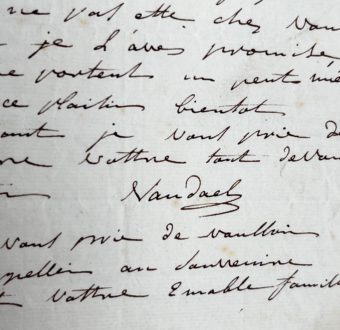 ne pas ette chez vou
je l'aves promise
ne portent un peut mie
ce plaisir bientot
je vous prie de
vottre tout devou
Vandael
vous prie de voulloir
appeller au souvenire
vottre Emable famil